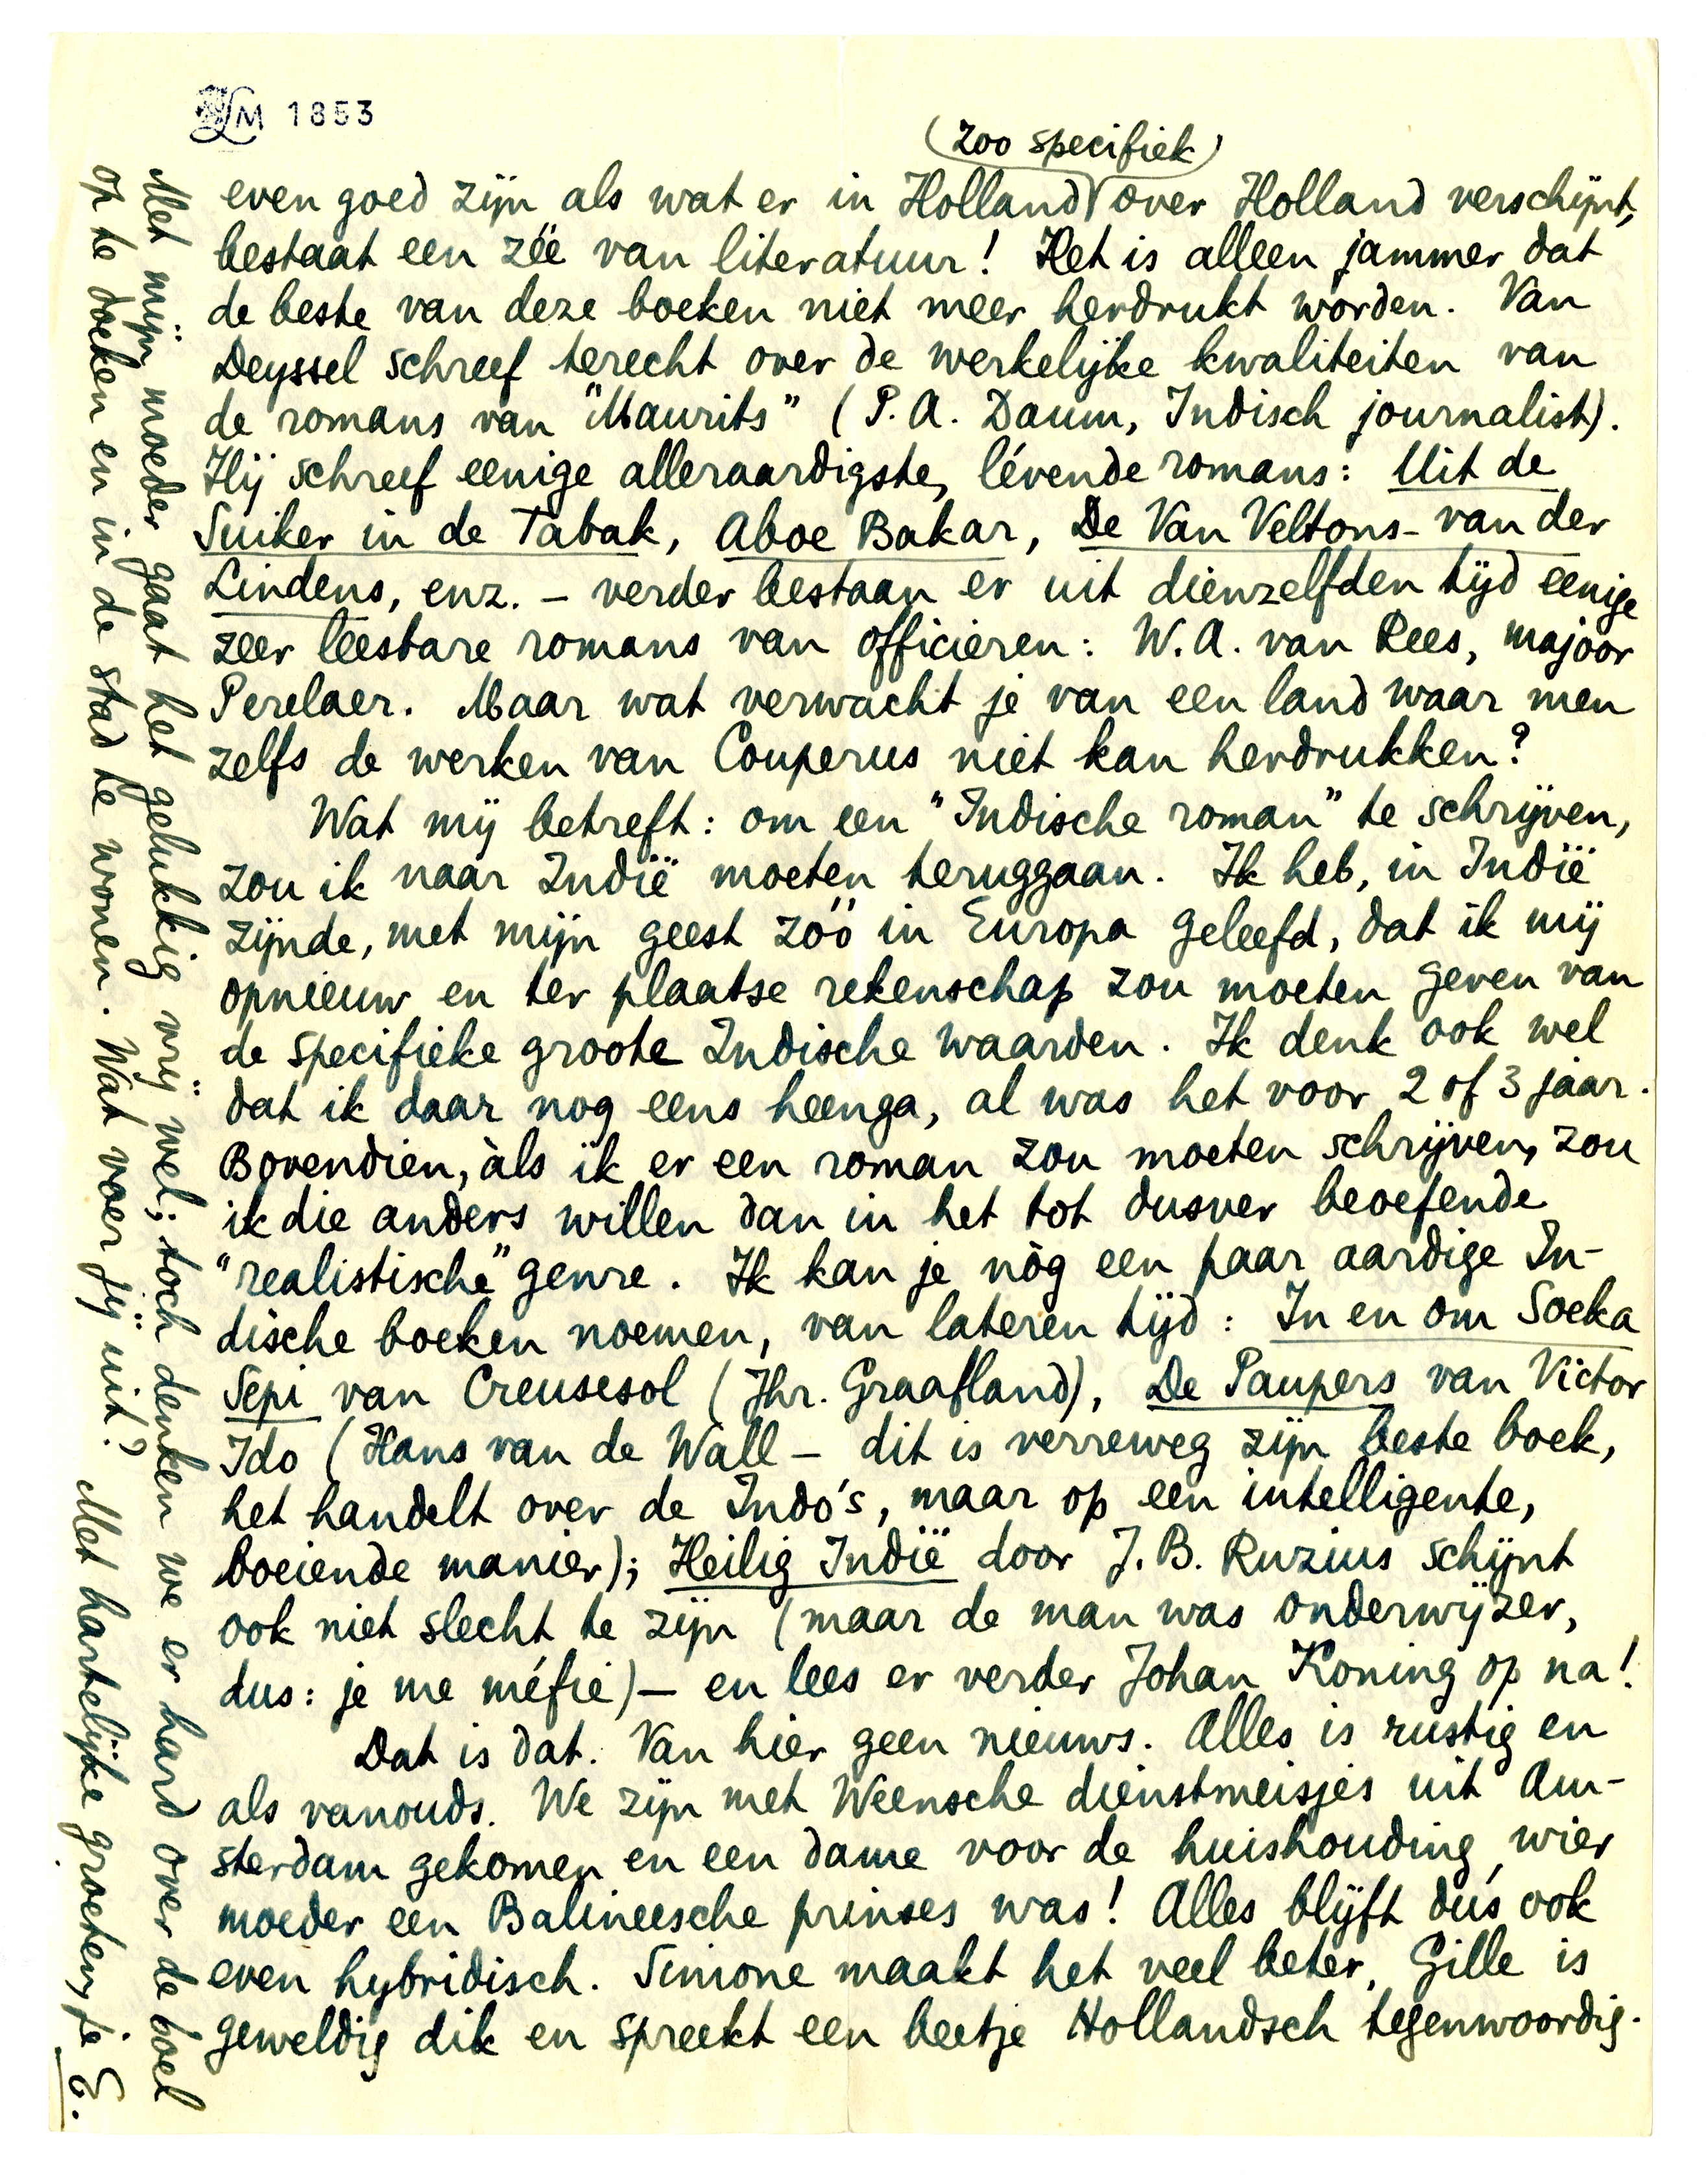 LM 1853
(zoo specifiek)
even goed zijn als wat er in Holland over Holland verschijnt,
bestaat een zéé van literatuur! Het is alleen jammer dat
de beste van deze boeken niet meer herdrukt worden. Van
Deyssel schreef terecht over de werkelijke kwaliteiten van
de romans van "Maurits" (P.A. Daum, Indisch journalist).
Hij schreef eenige alleraardigste, lévende romans: Uit de
Suiker in de Tabak, Aboe Bakar, De Van Veltons-van der
Lindens, enz. – verder bestaan er uit dienzelfden tijd eenige
zeer leesbare romans van officieren: W.A. van Rees, majoor
Perelaer. Maar wat verwacht je van een land waar men
zelfs de werken van Couperus niet kan herdrukken?
Wat mij betreft: om een "Indische roman" te schrijven,
zou ik naar Indië moeten teruggaan. Ik heb, in Indië
zijnde, met mijn geest zóó in Europa geleefd, dat ik mij
opnieuw en ter plaatse rekenschap zou moeten geven van
de specifieke groote Indische waarden. Ik denk ook wel
dat ik daar nog eens heenga, al was het voor 2 of 3 jaar.
Bovendien, àls ik er een roman zou moeten schrijven, zou
ik die anders willen dan in het tot dusver beoefende
"realistische" genre. Ik kan je nòg een paar aardige In-
dische boeken noemen, van lateren tijd: In en om Soeka
Sepi van Creusesol (Jhr. Graafland), De Paupers van Victor
Ido (Hans van de Wall – dit is verreweg zijn beste boek,
het handelt over de Indo's, maar op een intelligente,
boeiende manier); Heilig Indië door J.B. Ruzius schijnt
ook niet slecht te zijn (maar de man was onderwijzer,
dus: je me méfie) – en lees er verder Johan Koning op na!
Dat is dat. Van hier geen nieuws. Alles is rustig en
als vanouds. We zijn met Weensche dienstmeisjes uit Am-
sterdam gekomen en een dame voor de huishouding, wier
moeder een Balineesche prinses was! Alles blijft dus ook
even hybridisch. Simone maakt het veel beter, Gille is
geweldig dik en spreekt een beetje Hollandsch tegenwoordig.
Met mijn moeder gaat het gelukkig vrij wel; toch denken we er hard over de boel
op te doeken en in de stad te wonen. Wat voer jij uit? Met hartelijke groeten, je E.